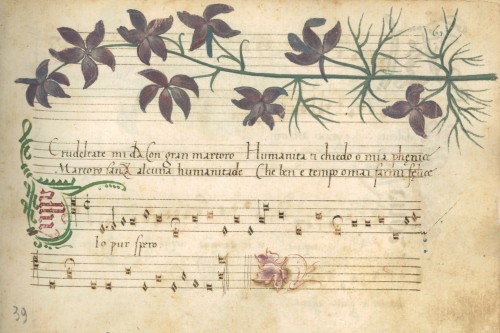 Crudeltate mi Dà Con gran martoro Humanita ti chiedo o mia phenice
Martoro alcuna humanitade Che ben e tempo omai farmi felice
Io pur spero
39